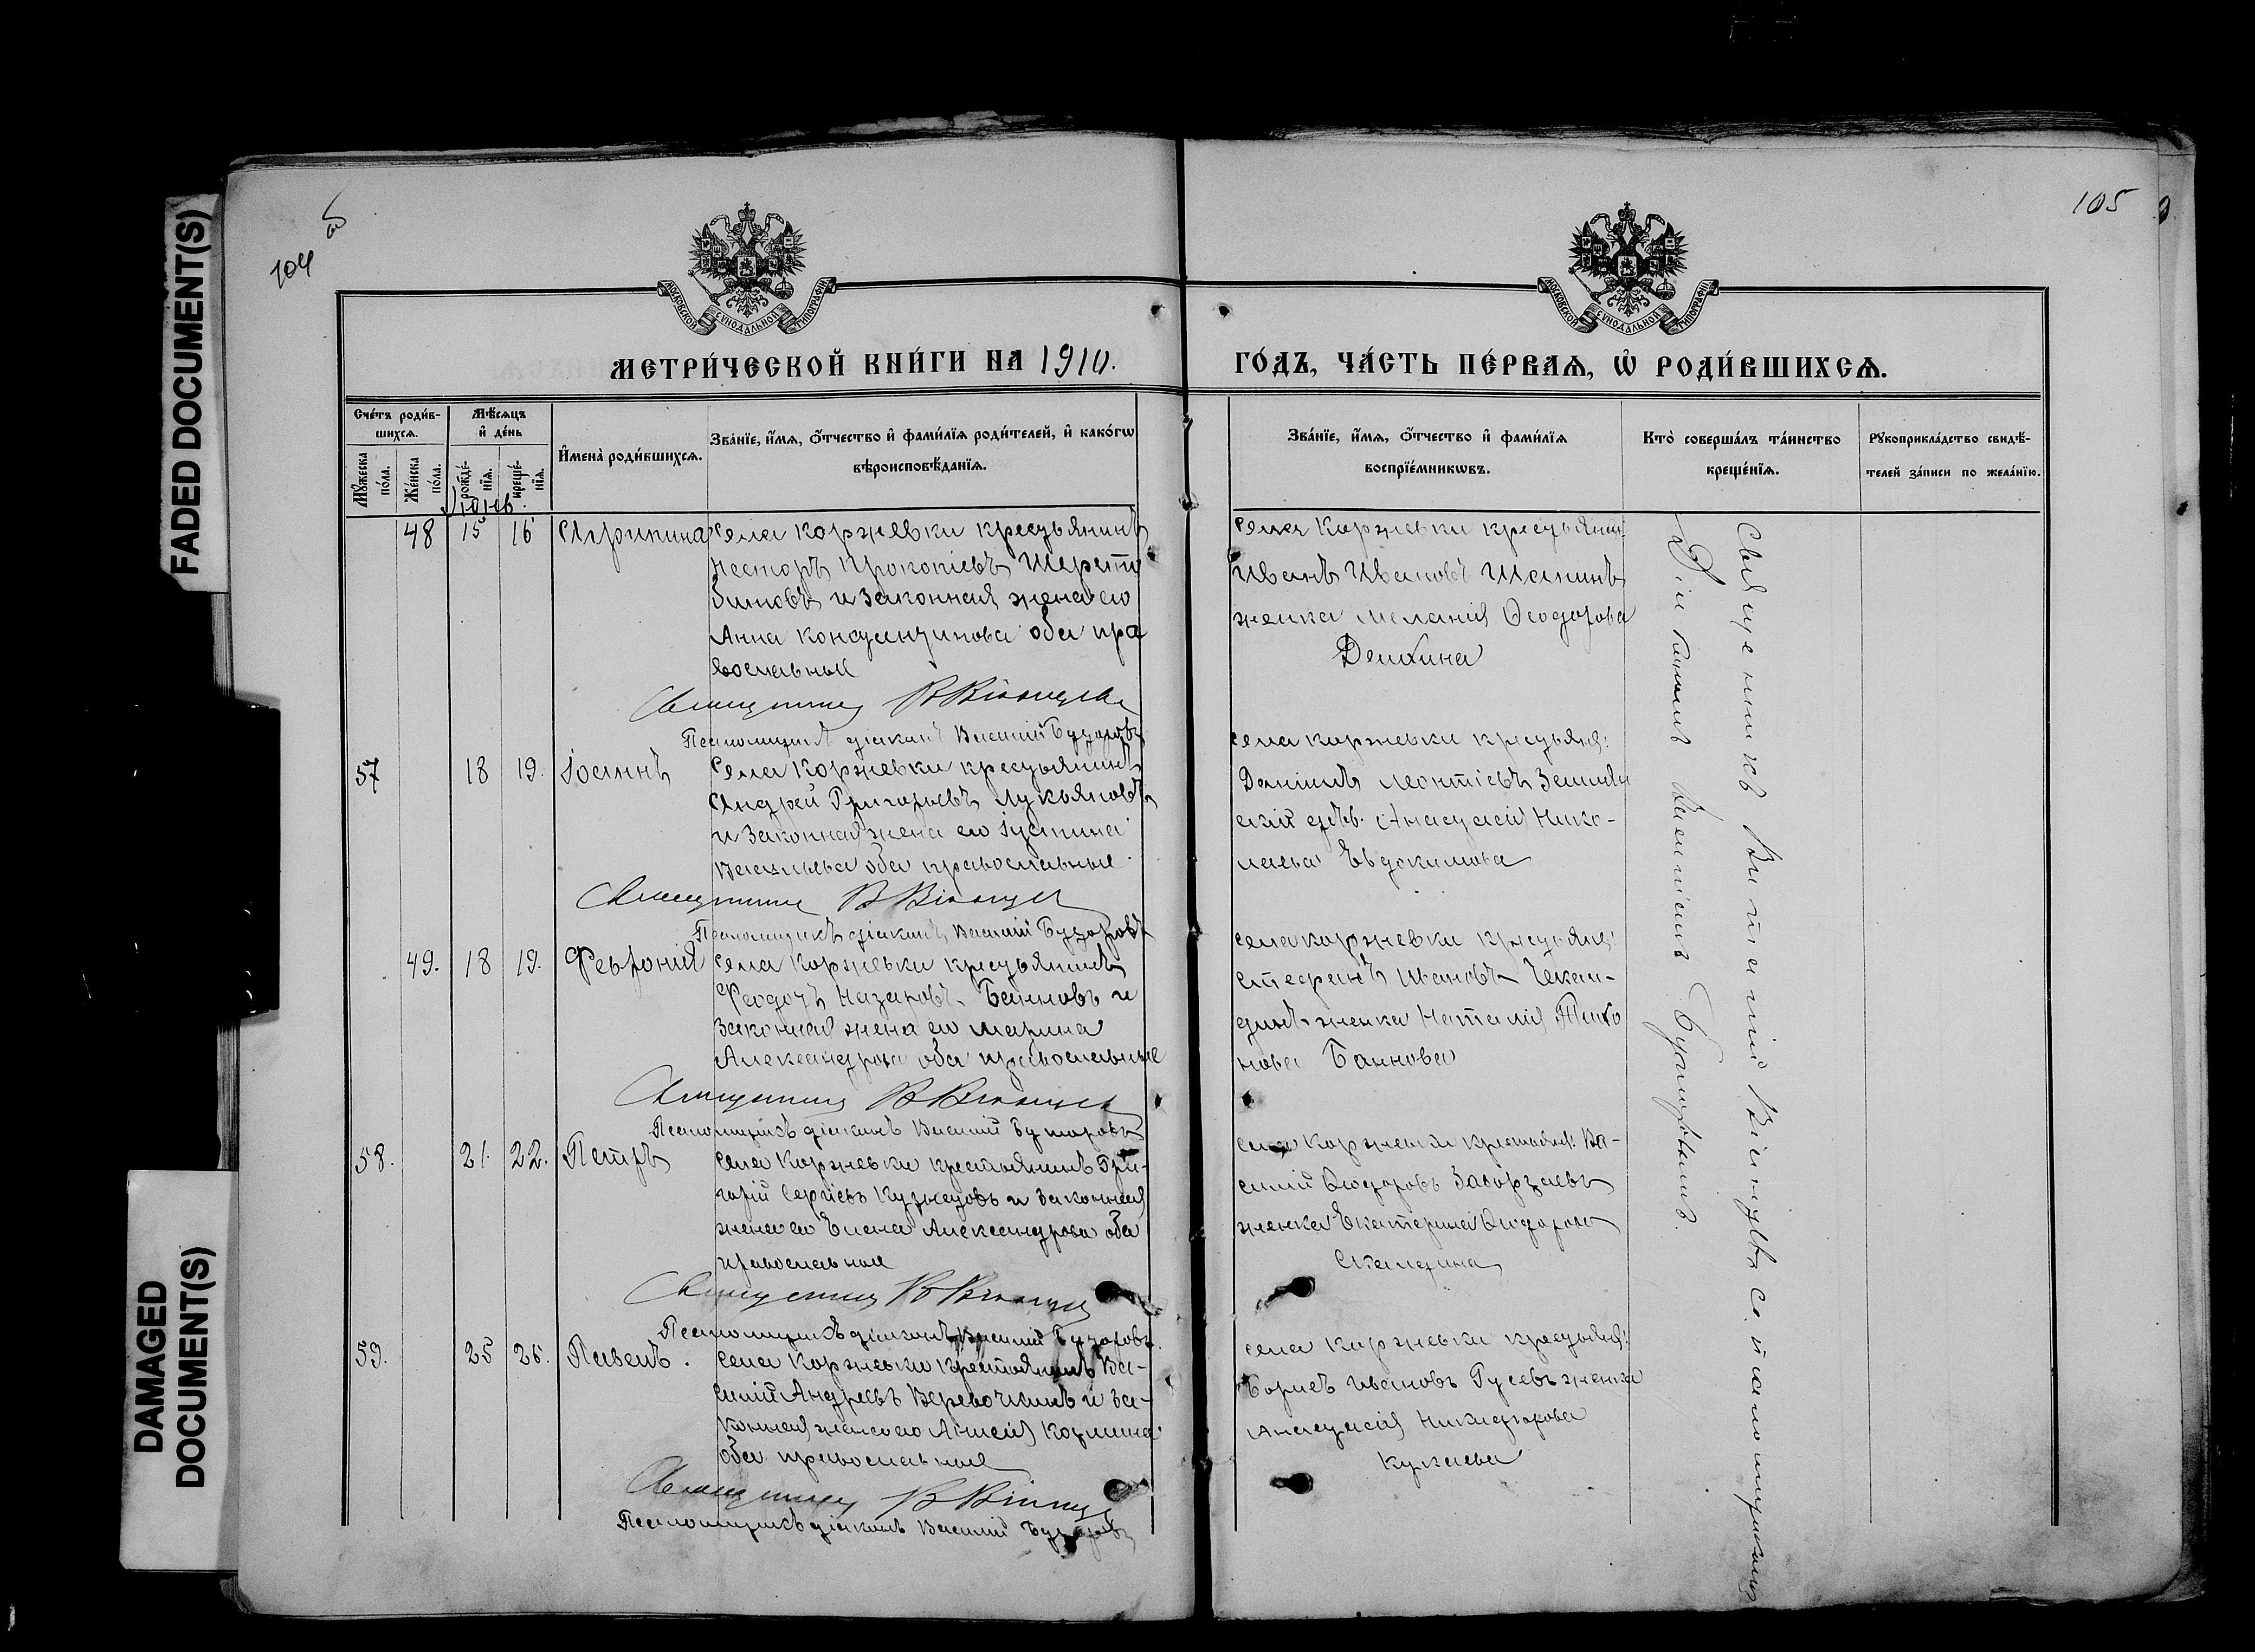 FADED DOCUMENT(S)
DAMAGED
DOCUMENT(S)
104 об
105
МОСКОВСКОЙ СѴНОДАЛЬНОЙ ТИПОГРАФІИ
МОСКОВСКОЙ СѴНОДАЛЬНОЙ ТИПОГРАФІИ
МЕТРИ́ЧЕСКОЙ КНИ́ГИ НА 1910.
ГО́ДЪ, ЧА́СТЬ ПЕ́РВАѦ, Ѡ РОДИ́ВШИХСѦ.
Сче́тъ роди́в-
шихсѧ.
Мꙋ́жеска
по́ла.
Же́нска
по́ла.
Мѣ́сѧцъ
и҆ де́нь
рожде́-
нїѧ.
креще́-
нїѧ.
И҆мена̀ роди́вшихсѧ.
Зва́нїе, и҆́мѧ, ѻ҆́тчество и҆ фами́лїѧ роди́телей, и҆ како́гѡ
вѣроисповѣ́данїѧ.
Зва́нїе, и҆́мѧ, ѻ҆́тчество и҆ фами́лїѧ
воспрїе́мникѡвъ.
Кто̀ соверша́лъ та́инство
креще́нїѧ.
Рꙋкоприкла́дство свидѣ́-
телей за́писи по жела́нїю.
Іюнь
48 15 16 Агрипина
Села Коржевки крестьянинъ
Несторъ Прокопіевъ
и законная жена его
Анна Константинова оба пра
вославные
Священникъ В Віонцевъ
Псаломщикъ діаконъ Василій Бугоровъ
Села Коржевки крестьянин:
Иванъ Ивановъ Шапинъ
женка Меланія Ѳеодорова
57 18 19. Іоаннъ
Села Коржевки крестьянинъ
Андрей Григорьевъ Лукьяновъ
и законная жена его Іустина
Васильева оба православные.
Священникъ В Віонцевъ
Псаломщикъ діаконъ Василій Бугоровъ
Села Коржевки крестьян:
Даніилъ Леонтіевъ
дѣв. Анастасія Нико-
лаева Евдокимова
49. 18 19. Февронія
Села Коржевки крестьянинъ
Феодотъ Назаровъ Баннов и
законная жена его Марина
Александрова оба православные
Священникъ В Віонцевъ
Псаломщикъ діаконъ Василій Бугоровъ
Села Коржевки крестьян:
Стефанъ Ивановъ Чекал-
динъ женка Наталія Тихо
нова Баннова
58. 21. 22. Петръ
Села Коржевки крестьянинъ Гри-
горій Сергіевъ Кузнецовъ и законная
жена его Елена Александрова оба
православные
Священникъ В Віонцевъ
Псаломщикъ діаконъ Василій Бугоровъ
Села Коржевки крестьян: Ва-
силій Ѳеодоровъ
женка Екатерина Ѳеодорова
59. 25 26. Павелъ.
Села Коржевки крестьянинъ Ва-
силій Андреевъ Веревочкинъ и за-
конная жена его Анисія Козмина
оба православные
Священникъ В Віонцевъ
Псаломщикъ діаконъ Василій Бугоровъ
Села Коржевки крестьян:
Борисъ Ивановъ Гусевъ женка
Анастасія Никифорова
Кукаева
Священникъ Виталій Віонцевъ со псаломщикомъ
Діакономъ Василіемъ Бугоровымъ.